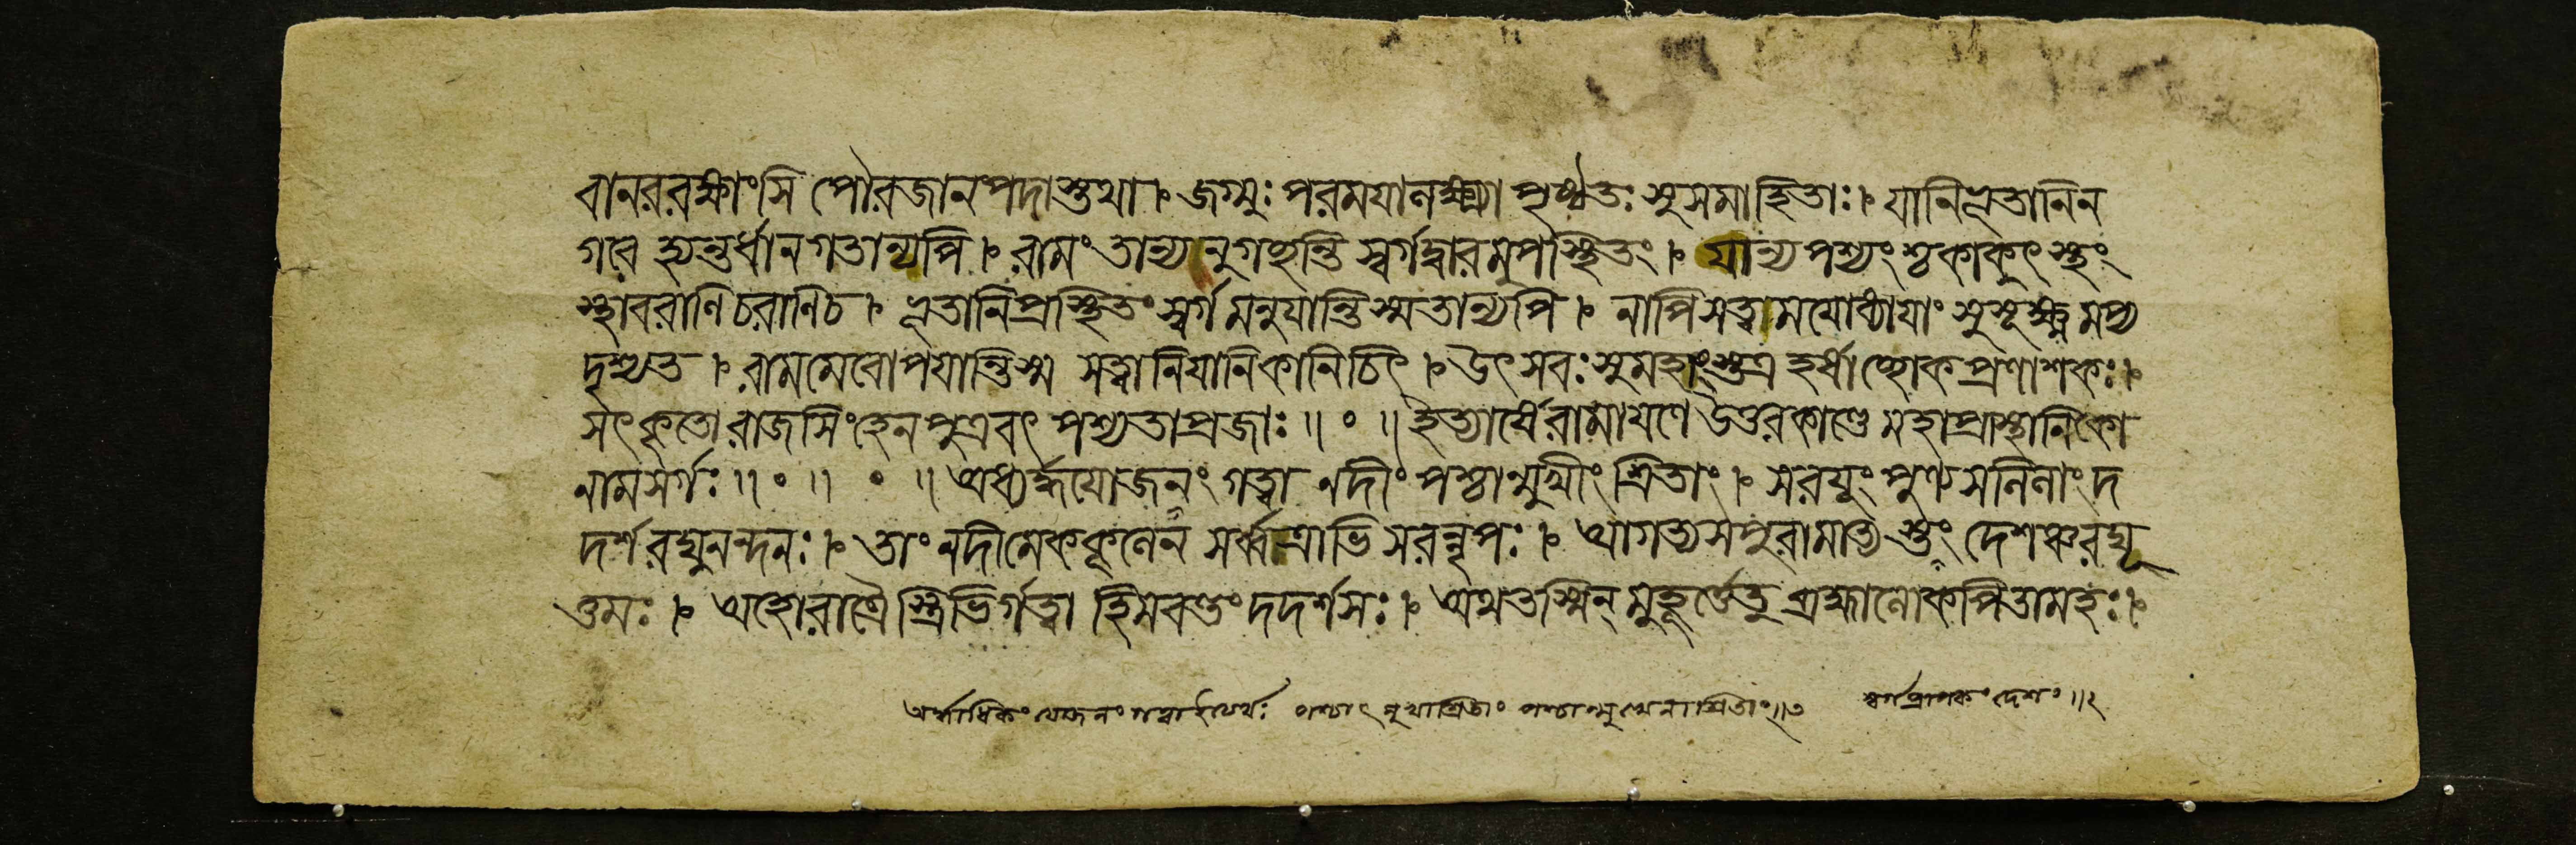 বানররক্ষাংসি পৌরজানপদাস্তথা । জগ্মুঃ পরময়া ভক্ত্যা পৃষ্ঠতঃ সুসমাহিতাঃ । যানি ভূতানি ন
গরে হ্যন্তর্ধানগতান্যপি । রামং তান্যনুগচ্ছন্তি স্বর্গদ্বারমুপস্থিতং । যান্যপশ্যংশ্চ কাকুৎস্থং
স্থাবরাণি চরাণি চ । ভূতানি প্রস্থিতং স্বর্গমনুযান্তি স্ম তান্যপি । নাপি সত্বামযোধ্যাযাং সুসূক্ষ্মমপ্য
দৃশ্যত । রামমেবোপযান্তি স্ম সত্বানি যানি কানিচিৎ । উৎসবঃ সুমহাংস্তত্র হর্ষাচ্ছোকপ্রণাশকঃ ।
সৎকৃতো রাজসিংহেন পুত্রবৎ পশ্যতা প্রজাঃ ॥ ॰ ॥ ইত্যার্ষে রামাযণে উত্তরকাণ্ডে মহাপ্রাস্থানিকো
নাম সর্গঃ ॥ ॰ ॥ ॰ ॥ অধ্যর্দ্ধযোজনং গত্বা নদীং পশ্চান্মুখীং শ্রিতাং । সরযূং পুণ্যসলিলাং দ
দর্শ রঘুনন্দনঃ । তাং নদীমেককূলেন সর্ব্বত্রাভিসরন্নৃপঃ । আগত্য সপুরামাত্যস্তং দেশঞ্চ রঘূ
ত্তমঃ । অহোরাত্রৈস্ত্রিভির্গত্বা হিমবন্তং দদর্শ সঃ । অথ তস্মিন্ মুহূর্ত্তে তু ব্রহ্মা লোকপিতামহঃ ।
অর্দ্ধাধিকং যোজনং গত্বা ইত্যর্থঃ পশ্চান্মুখাশ্রিতাং পশ্চান্মুখেনাশ্রিতাং ॥ স্বর্গপ্রাপকং দেশং ॥ ২